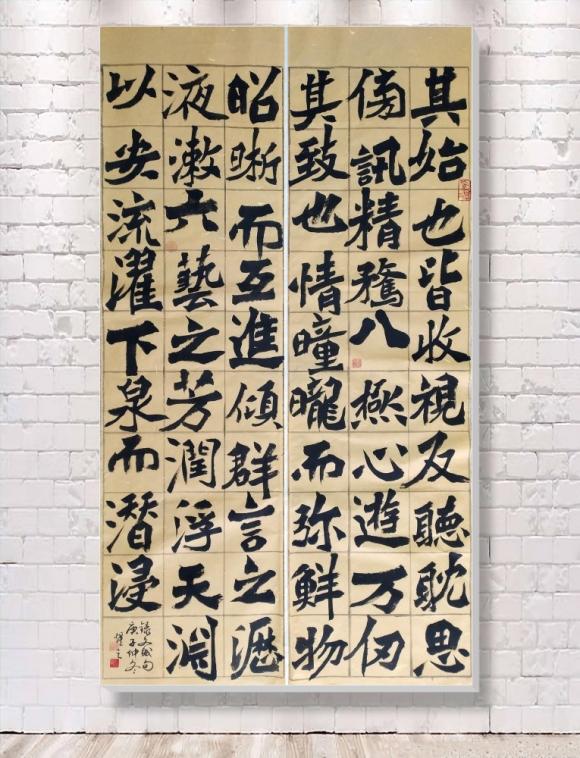 其始也皆收視反聽耽思
傍訊精騖八極心遊万仞
其致也情曈曨而弥鮮物
昭晰而互進傾群言之瀝
液漱六藝之芳潤浮天淵
以安流濯下泉而潛浸
錄文賦句
庚子仲冬